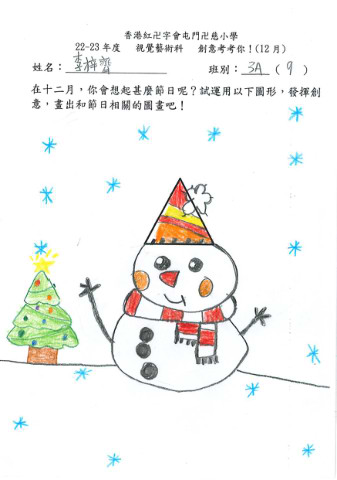 香港紅卍字會屯門卍慈小學
22-23年度 視覺藝術科 創意考考你！(12月)
姓名：李梓馨 班別：3A (9)
在十二月，你會想起甚麼節日呢？試運用以下圖形，發揮創
意，畫出和節日相關的圖畫吧！